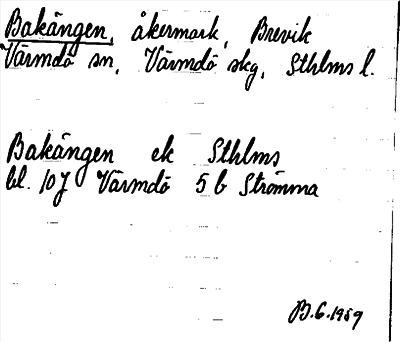 Bakängen, åkermark, Brevik
Värmdö sn, Värmdö skg, Sthlms l.
Bakängen ek Sthlms
bl. 10J Värmdö 5 b Strömma
B.G.1959